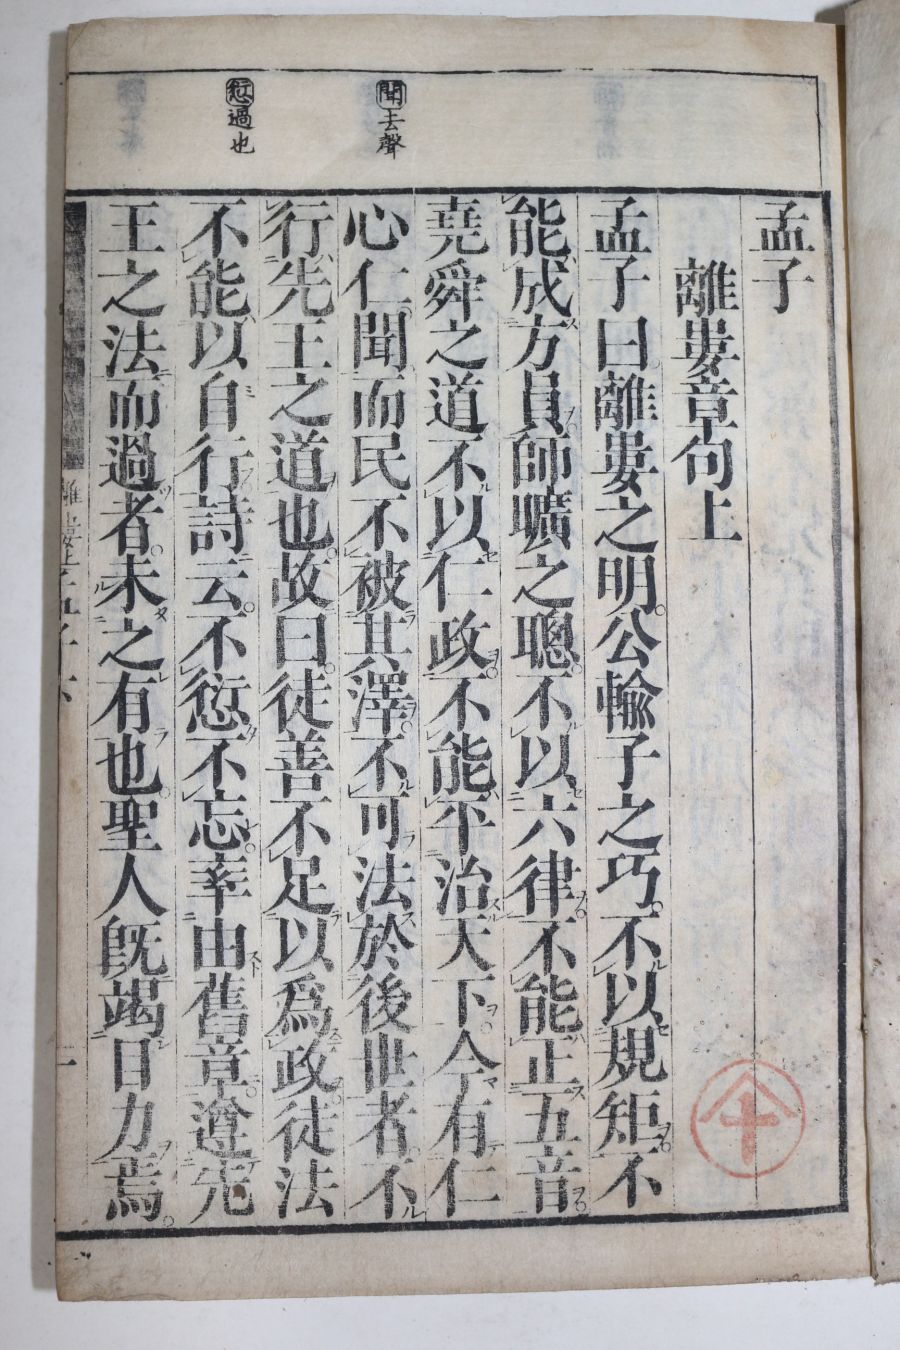 聞去聲
愆過也
孟子
離婁章句上
孟子曰離婁之明公輸子之巧不以規矩不
能成方員師曠之聰不以六律不能正五音
堯舜之道不以仁政不能平治天下今有仁
心仁聞而民不被其澤不可法於後世者不
行先王之道也故曰徒善不足以爲政徒法
不能以自行詩云不愆不忘率由舊章遵先
王之法而過者未之有也聖人旣竭目力焉